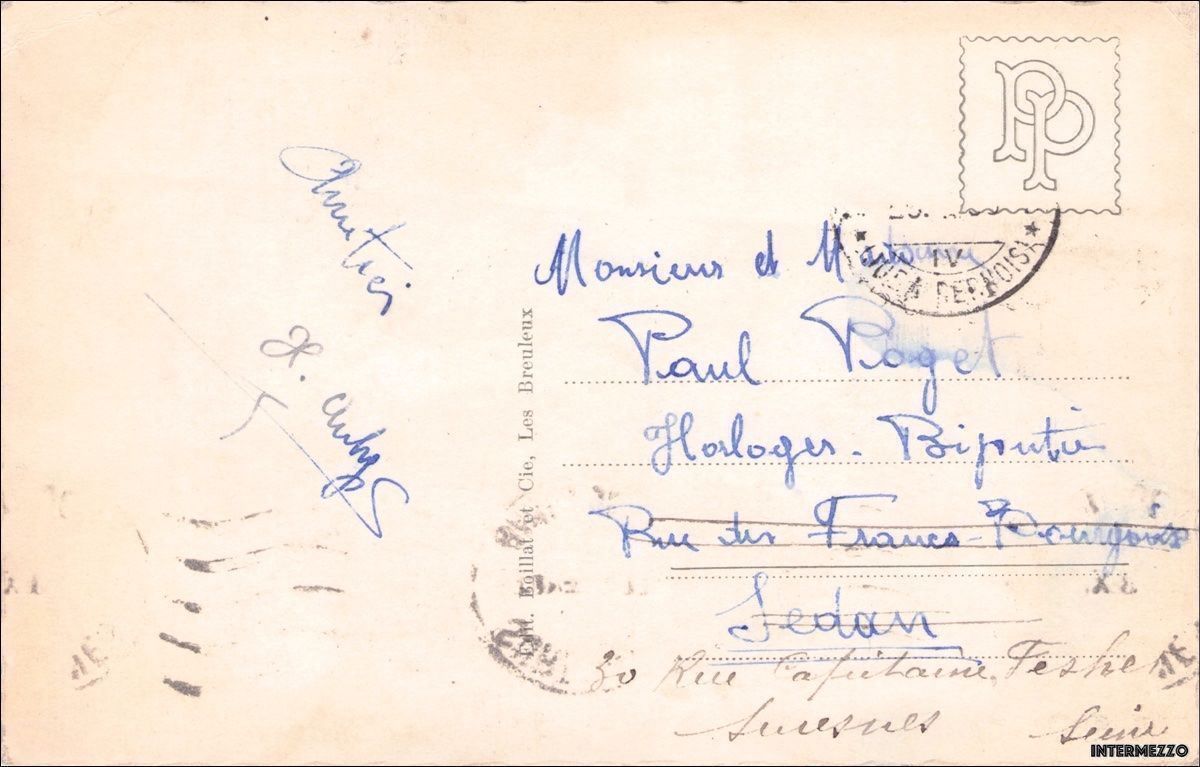 Amitiés
Monsieur et Madame
Paul Poget
Horloger-Bijoutier
Rue des Francs-Bourgeois
Sedan
30 Rue Capitaine
Suresnes Seine
Edit. Boillat et Cie, Les Breuleux
PP
IV
JURA BERNOIS
INTERMEZZO